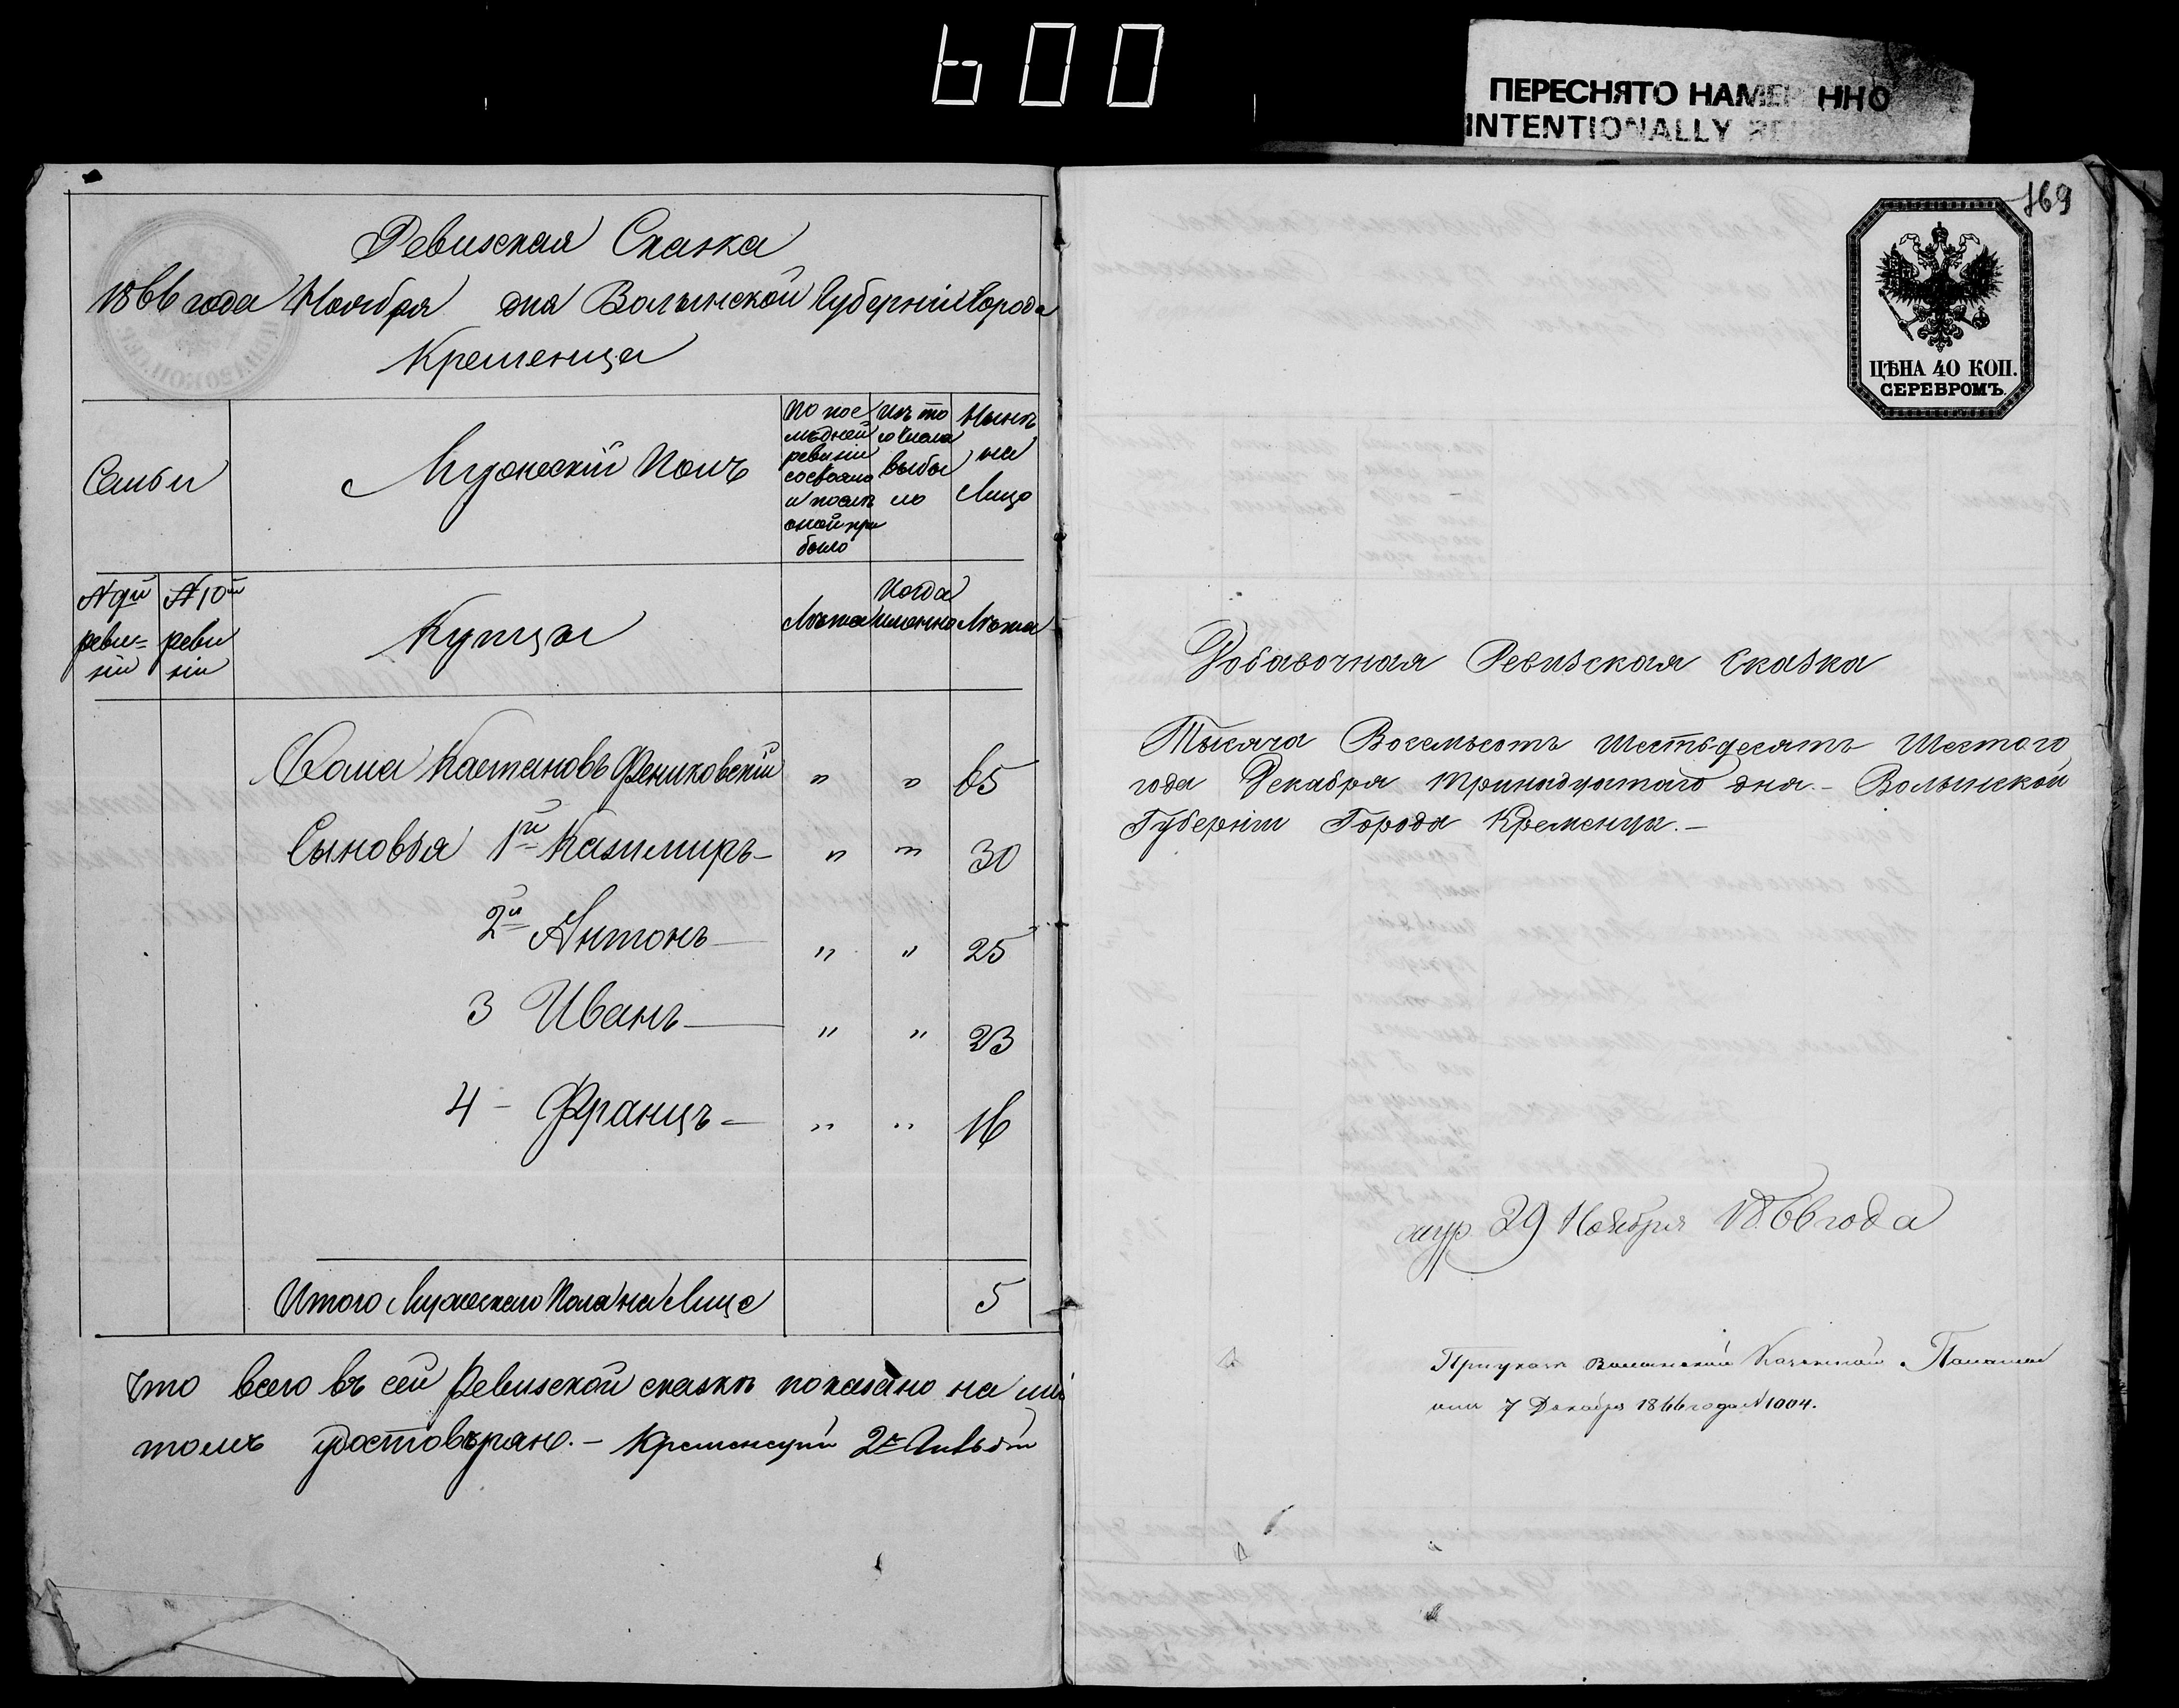 600
ПЕРЕСНЯТО НАМЕР ННО
INTENTIONALLY
Ревизская Сказка
1866 года Ноября дня Волынской Губерніи Города
Кременца
Семьи
Мужескій Полъ
По пос
лѣдней
ревизіи
состояло
и послѣ
оной при
было
Изъ то
го числа
выбы
ло
Нынѣ
на
Лицо
N 9й
реви=
зіи
N 10й
реви
зіи
Купцы
Лѣта
Когда
именно
Лѣта
Фениковскій " " 65
Сыновья 1й Казимиръ - " " 30
2й Антонъ - " " 25
3 Иванъ - " " 23
4 - Францъ - " " 16
Итого Мужескаго Пола на Лице 5
Что всего въ сей Ревизской сказкѣ показано на
томъ удостовѣряю. - Кременецкій 2й Гильдіи
169
ЦѢНА 40 КОП.
СЕРЕБРОМЪ.
Добавочная Ревизская Сказка
Тысяча Восемьсотъ Шестьдесятъ Шестого
года Декабря тринадцатаго дня. - Волынской
Губерніи Города Кременца. -
жур. 29 Ноября 1866 года
При указѣ Волынской Казенной Палаты
7 Декабря 1866 года N 1004.